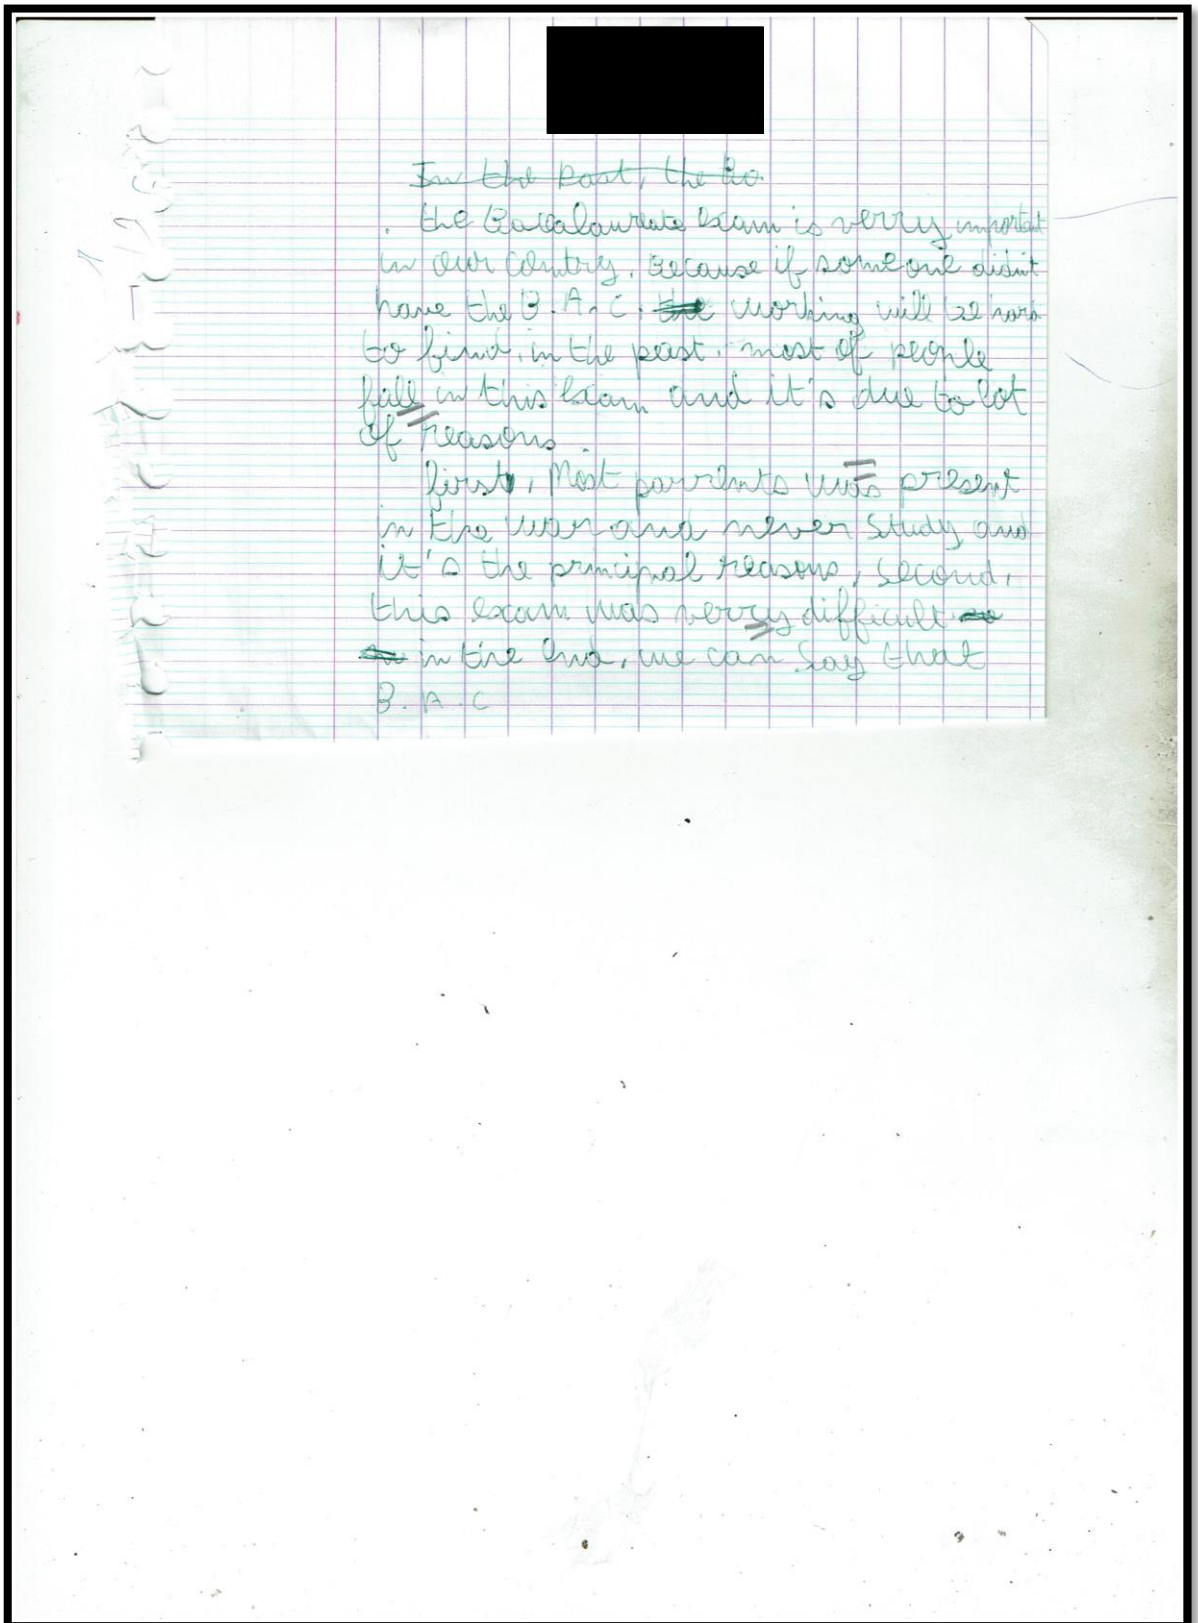 In the Past, the Ba
. the Baccalaureate exam is verry important
in our contry. Because if someone didn't
have the B.A.C. the working will be hard
to find. in the past. most of people
fall in this exam and it's due to lot
of reasons.
first, Most parrents was present
in the war and never study and
it's the principal reasons, second,
this exam was verry difficult
in the end, we can say that
B.A.C